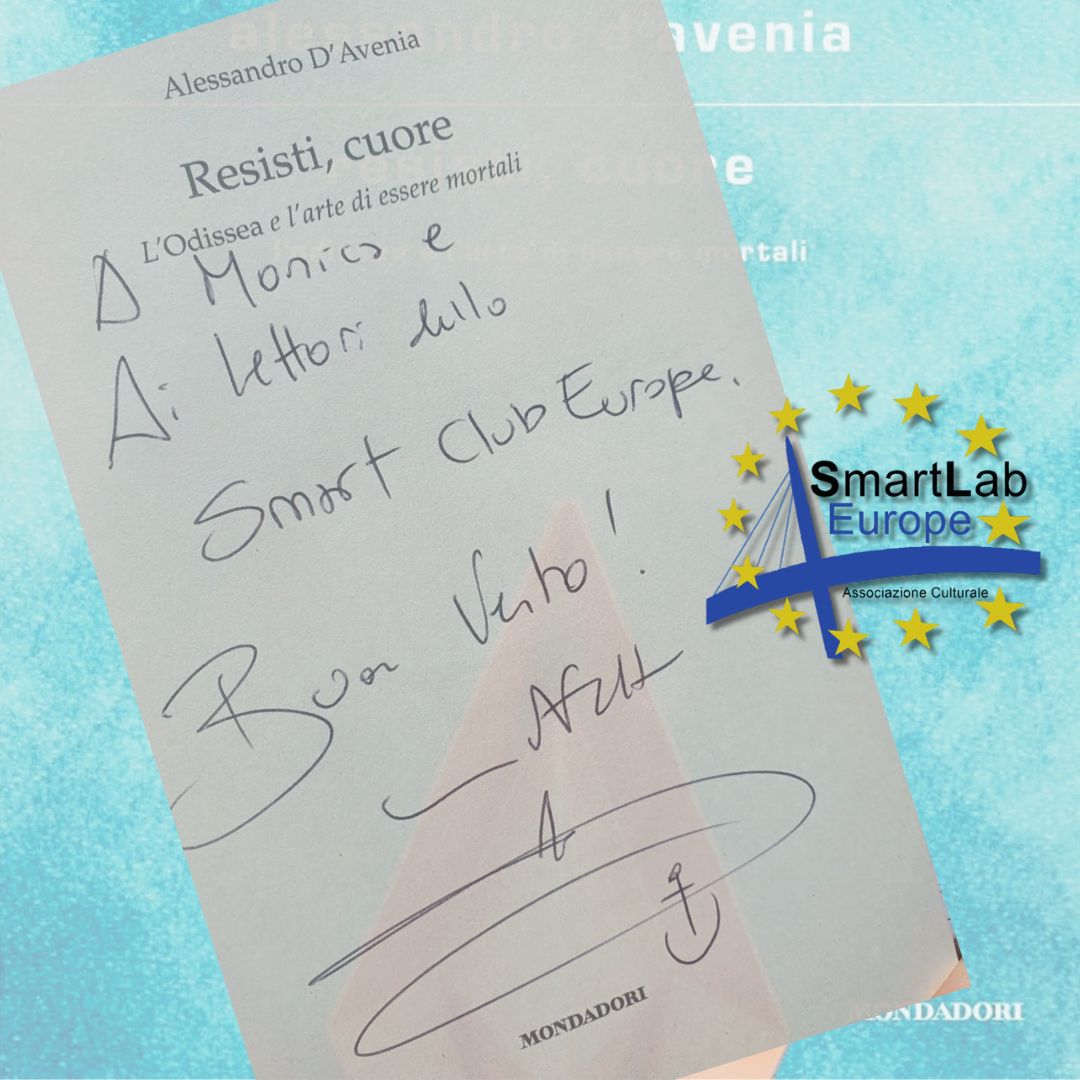 alessandro d'avenia
Alessandro D'Avenia
Resisti, cuore
L'Odissea e l'arte di essere mortali
resisti, cuore
mortali
A Monica e
Ai lettori dello
Smart Club Europe.
Buon Vento!
SmartLab
Europe
Associazione Culturale
MONDADORI
MONDADORI